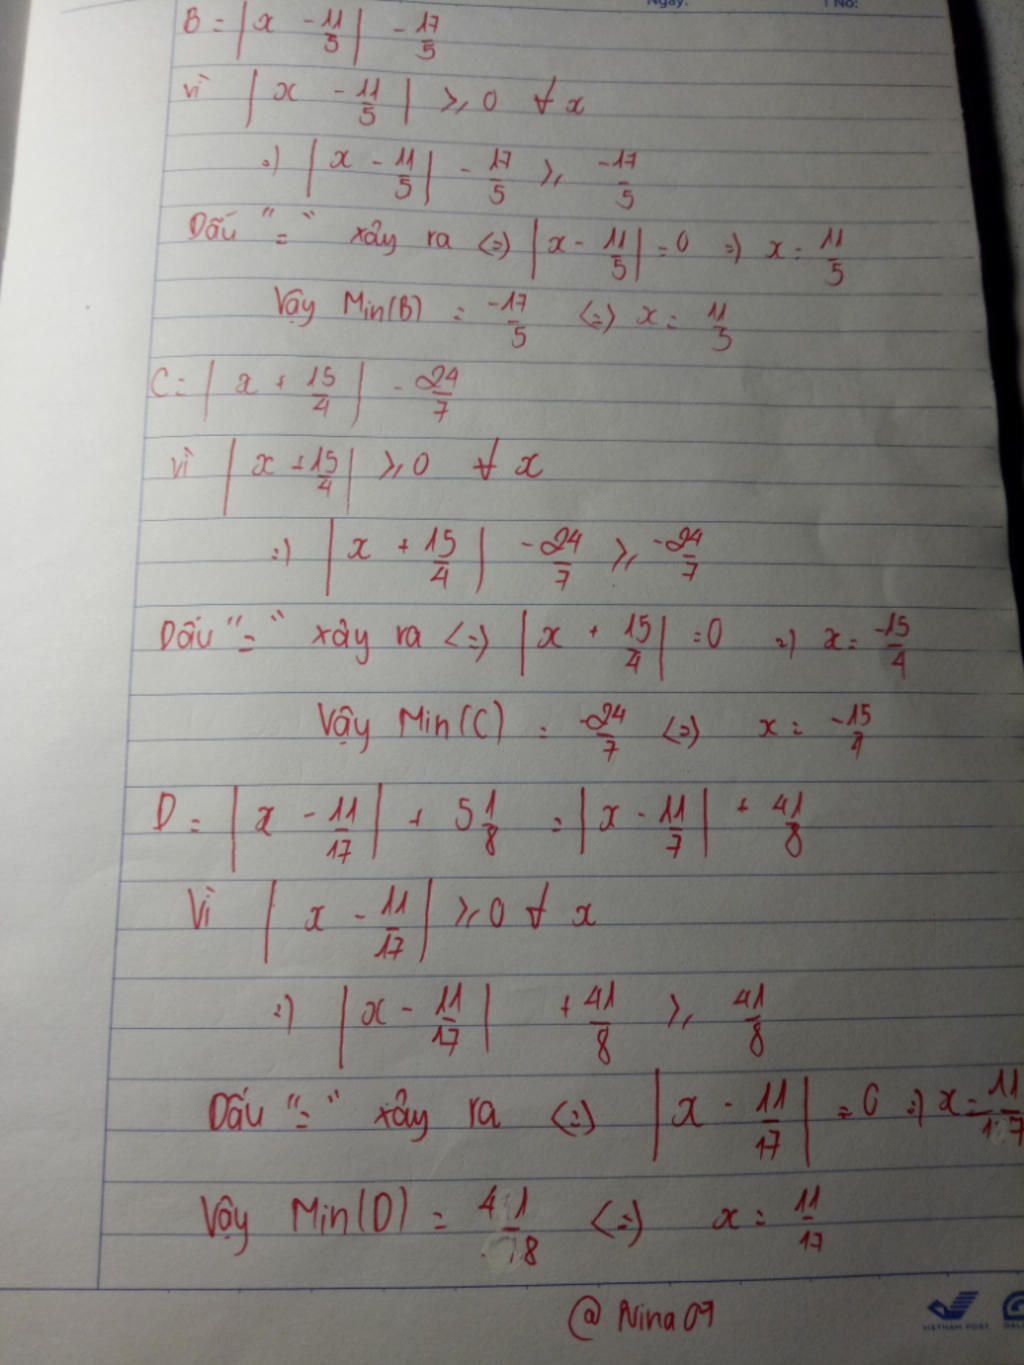 Ngày: No:
B = |x - 11/5| - 17/5
vì |x - 11/5| ≥ 0 ∀ x
=) |x - 11/5| - 17/5 ≥ -17/5
Dấu "=" xảy ra <=> |x - 11/5| = 0 =) x = 11/5
Vậy Min(B) = -17/5 <=> x = 11/5
C = |x + 15/4| - 24/7
vì |x + 15/4| ≥ 0 ∀ x
=) |x + 15/4| - 24/7 ≥ -24/7
Dấu "=" xảy ra <=> |x + 15/4| = 0 =) x = -15/4
Vậy Min(C) = -24/7 <=> x = -15/4
D = |x - 11/17| + 5 1/8 = |x - 11/7| + 41/8
Vì |x - 11/17| ≥ 0 ∀ x
=) |x - 11/17| + 41/8 ≥ 41/8
Dấu "=" xảy ra <=> |x - 11/17| = 0 =) x = 11/17
Vậy Min(D) = 41/8 <=> x = 11/17
@Nina09
VIETNAM POST